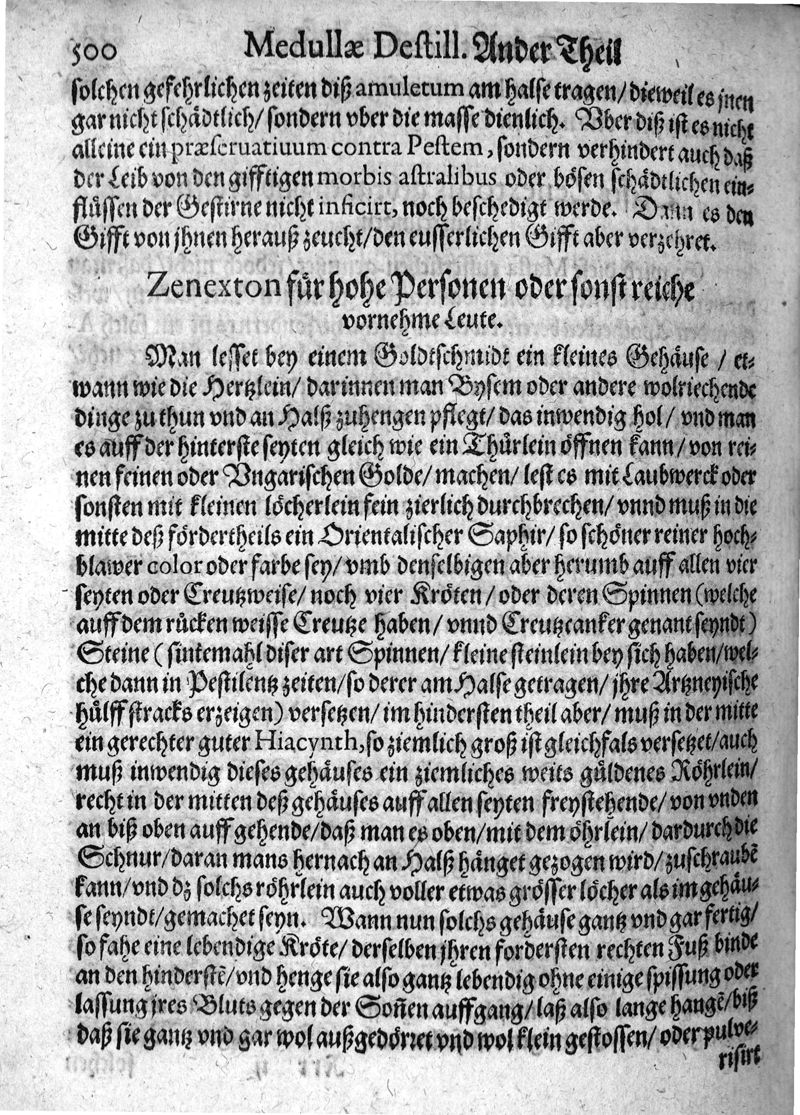 500 Medullæ Destill. Ander Theil
solchen gefehrlichen zeiten diß amuletum am halse tragen/ dieweil es jnen
gar nicht schädtlich/ sondern vber die masse dienlich. Vber diß ist es nicht
alleine ein præservatiuum contra Pestem, sondern verhindert auch daß
der Leib von den gifftigen morbis astralibus oder bösen schädtlichen ein-
flüssen der Gestirne nicht inficirt, noch beschedigt werde. Dann es den
Gifft von jhnen herauß zeucht/ den eusserlichen Gifft aber verzehret.
Zenexton für hohe Personen oder sonst reiche
vornehme Leute.
Man lesset bey einem Goldtschmidt ein kleines Gehäuse / et-
wann wie die Hertzlein/ darinnen man Bysem oder andere wolriechende
dinge zu thun vnd an Halß zuhengen pflegt/ das inwendig hol/ vnd man
es auff der hinterste seyten gleich wie ein Thürlein öffnen kann/ von rei-
nen feinen oder Vngarischen Golde/ machen/ lest es mit Laubwerck oder
sonsten mit kleinen löcherlein fein zierlich durchbrechen/ vnnd muß in die
mitte deß fördertheils ein Orientalischer Saphir/ so schöner reiner hoch-
blawer color oder farbe sey/ vmb denselbigen aber herumb auff allen vier
seyten oder Creutzweise/ noch vier Kröten/ oder deren Spinnen (welche
auff dem rücken weisse Creutze haben/ vnnd Creutzcanker genant seyndt)
Steine ( sintemahl diser art Spinnen/ kleine steinlein bey sich haben/ wel-
che dann in Pestilentz zeiten/ so derer am Halse getragen/ jhre Artzneyische
hülff stracks erzeigen) versetzen/ im hindersten theil aber/ muß in der mitte
ein gerechter guter Hiacynth, so ziemlich groß ist gleichfals versetzet/ auch
muß inwendig dieses gehäuses ein ziemliches weits güldenes Röhrlein/
recht in der mitten deß gehäuses auff allen seyten freystehende/ von vnden
an biß oben auff gehende/ daß man es oben/ mit dem öhrlein/ dardurch die
Schnur/ daran mans hernach an Halß hänget gezogen wird/ zuschraubē
kann/ vnd dz solchs röhrlein auch voller etwas grösser löcher als im gehäu-
se seyndt/ gemachet seyn. Wann nun solchs gehäuse gantz vnd gar fertig/
so fahe eine lebendige Kröte/ derselben jhren fordersten rechten Fuß binde
an den hinderstē/ vnd henge sie also gantz lebendig ohne einige spissung oder
lassung jres Bluts gegen der Soñen auffgang/ laß also lange hangē/ biß
daß sie gantz vnd gar wol außgedörret vnd wol klein gestossen/ oder pulve-
risirt